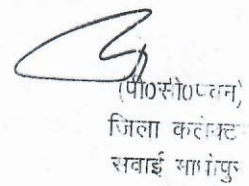 (पी०सी०पवन)
जिला कलेक्ट
सवाई माधोपुर